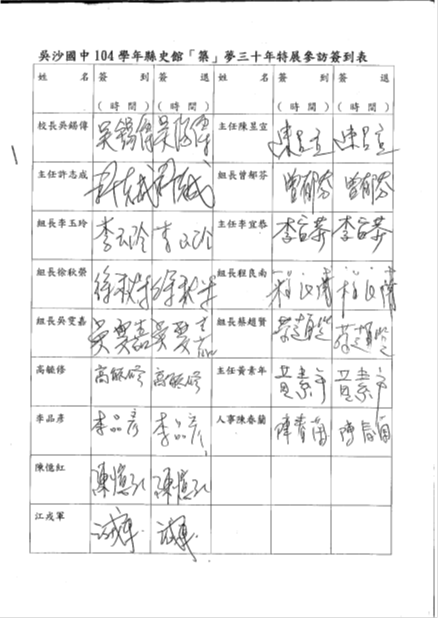 吳沙國中 104 學年縣史館「築」夢三十年特展參訪簽到表
姓 名 簽 到 簽 退 姓 名 簽 到 簽 退
(時間) (時間) (時間) (時間)
校長吳錫偉 吳錫偉 吳錫偉 主任陳昱宣 陳昱宣 陳昱宣
主任許志成 許志成 許志成 組長曾郁芬 曾郁芬 曾郁芬
組長李玉玲 李玉玲 李玉玲 主任李宜恭 李宜恭 李宜恭
組長徐秋榮 徐秋榮 徐秋榮 組長程良南
組長吳雯嘉 吳雯嘉 吳雯嘉 組長蔡趙賢
高毓修 高毓修 高毓修 主任黃素年 黃素年 黃素年
李品彥 李品彥 李品彥 人事陳春蘭 陳春蘭 陳春蘭
陳憶紅 陳憶紅 陳憶紅
江戎軍